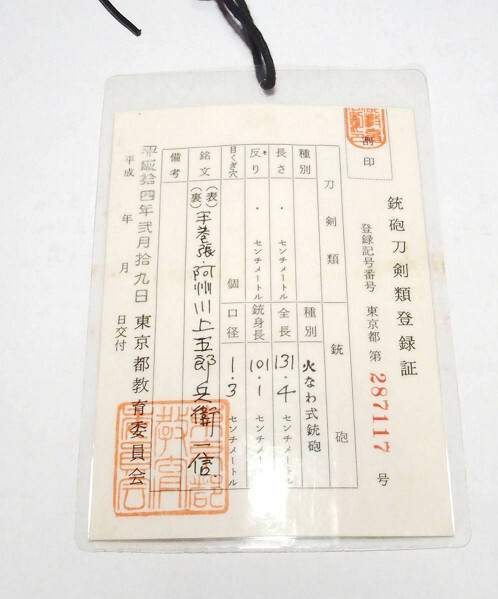 銃砲刀剣類登録証
割印
登録記号番号 東京都 第 287117 号
刀剣類
種別
長さ ・ センチメートル
反り ・ センチメートル
目くぎ穴 個
銃砲
種別 火なわ式銃砲
全長 131・4 センチメートル
銃身長 101・1 センチメートル
口径 1・3 センチメートル
銘文 (表)(裏) 半巻張・阿州川上五郎兵衛一信
備考
平成拾四年弐月拾九日
平成 年 月 日交付
東京都教育委員会